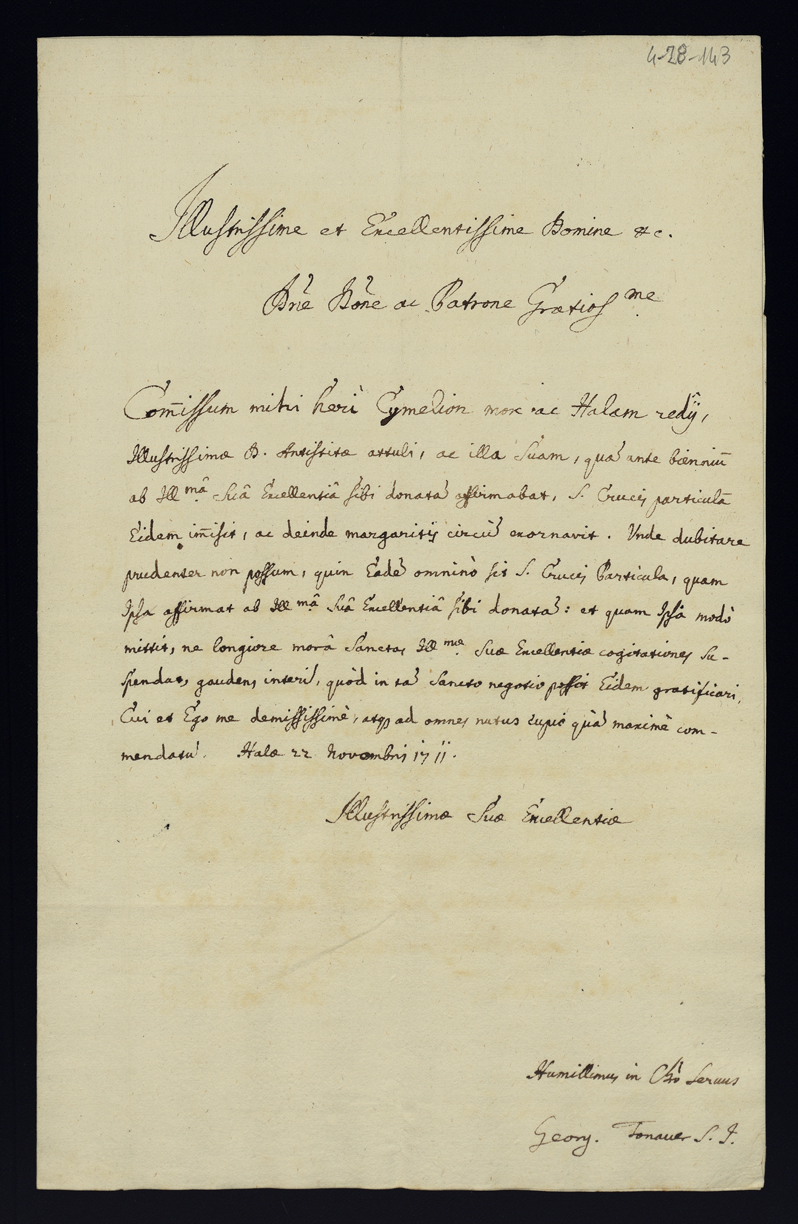 4-28-143
Illustrissime et Excellentissime Domine &c.
Dnē Dnē ac Patrone Gratiosme
Com̄issum mihi heri Cymelion mox ac Halam redÿ,
Illustrissimæ D. Antistitæ attuli, ac illa Suam, quā ante bienniū
ab Illmâ Suâ Excellentiâ sibi donatā affirmabat, S. Crucis particulā
Eidem im̄isit, ac deinde margaritis circū exornavit. Unde dubitare
prudenter non possum, quin Eadē omninò sit S. Crucis Particula, quam
Ipsa affirmat ab Illmâ Suâ Excellentiâ sibi donatā: et quam Ipsa modò
mittit, ne longiore morâ Sanctas Illmæ Suæ Excellentiæ cogitationes su-
spendat, gaudens interī, quòd in tā Sancto negotio possit Eidem gratificari,
Cui et Ego me demississimè, atq ad omnes nutus cupio quā maximè com-
mendatū. Halæ 22 Novembris 1711.
Illustrissimæ Suæ Excellentiæ
Humillimus in Chrō Servus
Georg. Tonauer S. J.